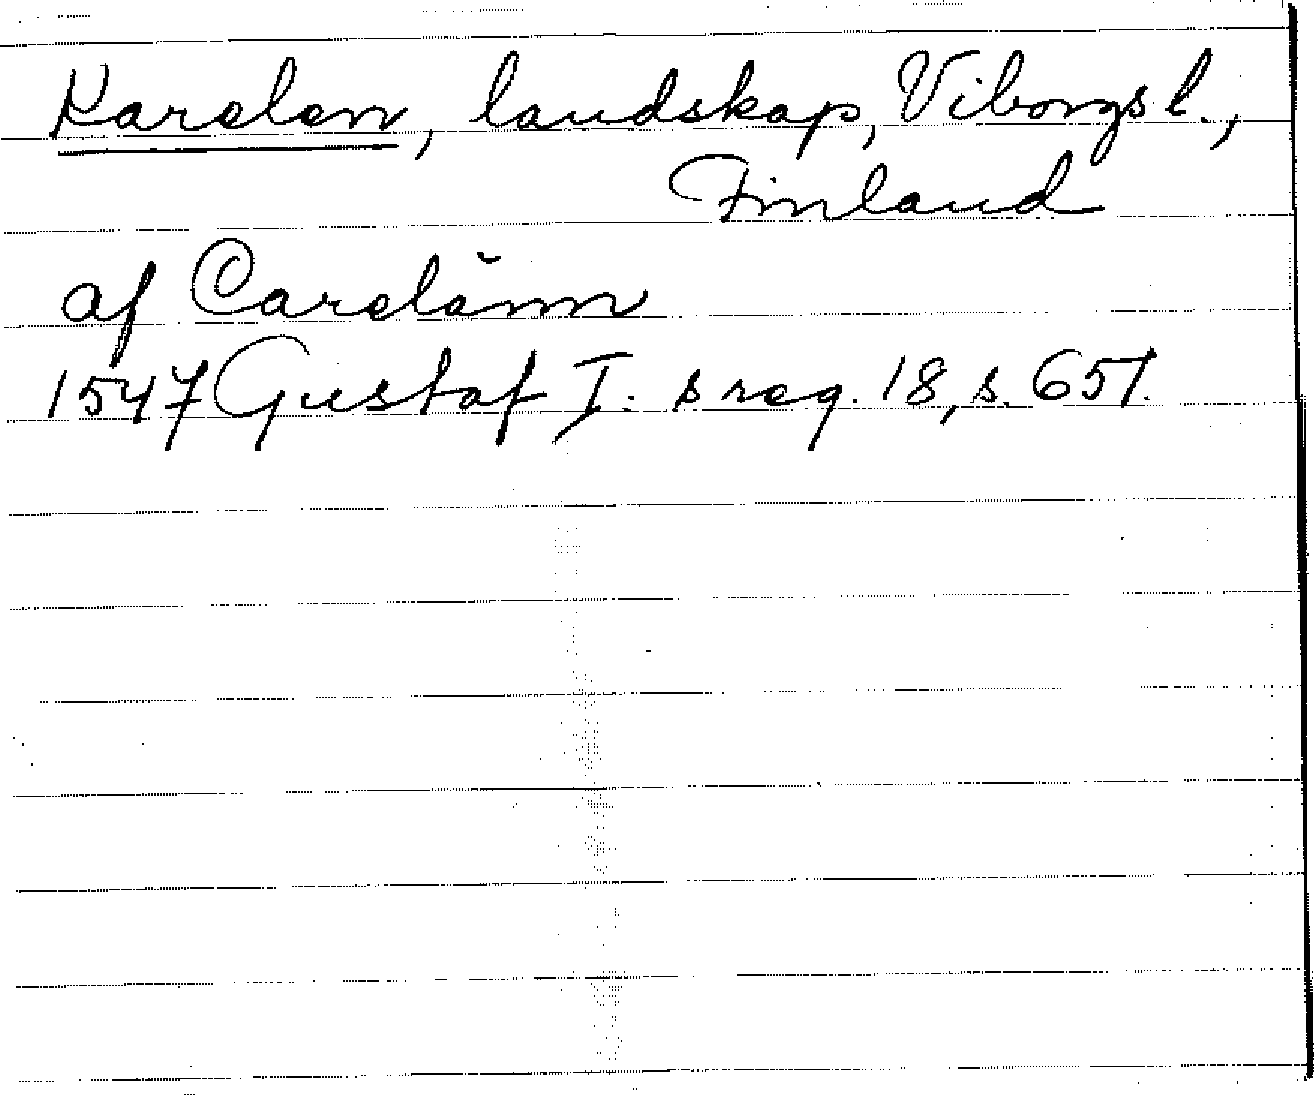 Karelen, landskap, Viborgs l.,
Finland
af Carelånn
1547 Gustaf I. s reg. 18, s. 651.